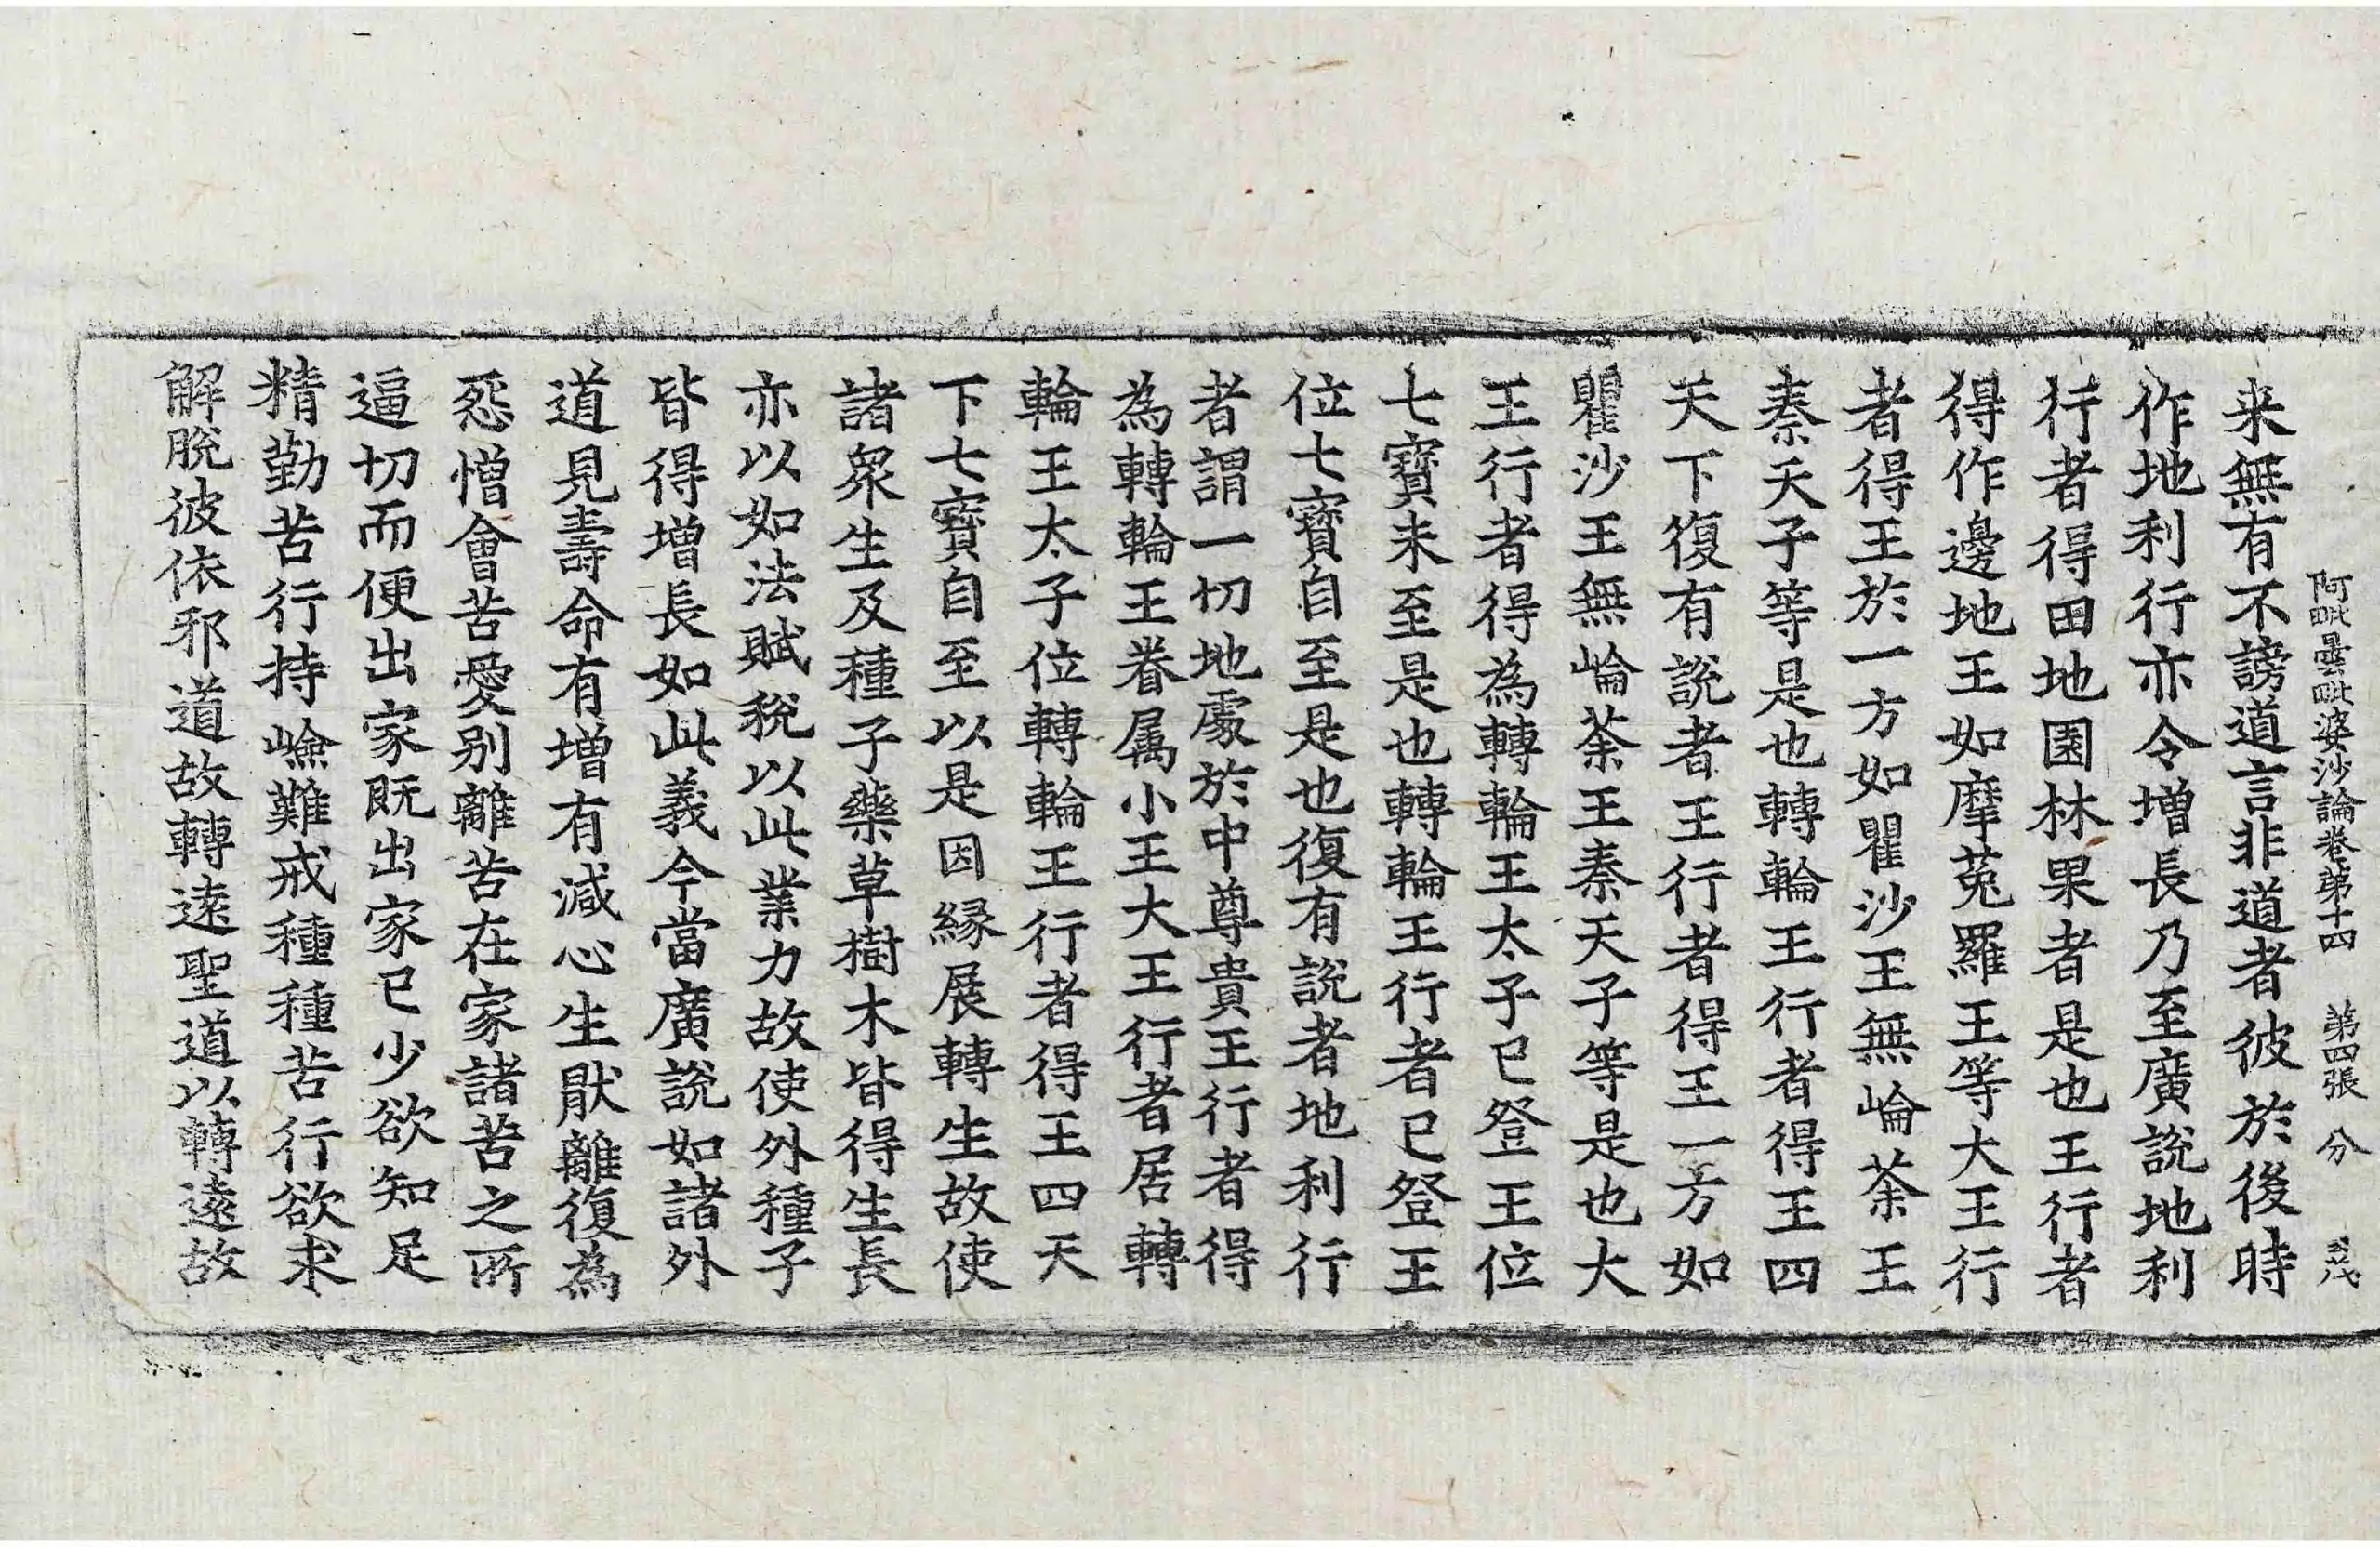 阿毗曇毗婆沙論卷第十四 第四張 分
来無有不謗道言非道者彼於後時
作地利行亦令增長乃至廣說地利
行者得田地園林果者是也王行者
得作邊地王如摩菟羅王等大王行
者得王於一方如瞿沙王無崘荼王
秦天子等是也轉輪王行者得王四
天下復有說者王行者得王一方如
瞿沙王無崘荼王秦天子等是也大
王行者得為轉輪王太子已登王位
七寶未至是也轉輪王行者已登王
位七寶自至是也復有說者地利行
者謂一切地處於中尊貴王行者得
為轉輪王眷属小王大王行者居轉
輪王太子位轉輪王行者得王四天
下七寶自至以是因緣展轉生故使
諸眾生及種子藥草樹木皆得生長
亦以如法賦稅以此業力故使外種子
皆得增長如此義今當廣說如諸外
道見壽命有增有減心生猒離復為
惌憎會苦愛別離苦在家諸苦之所
逼切而便出家既出家已少欲知足
精勤苦行持嶮難戒種種苦行欲求
解脫彼依邪道故轉遠聖道以轉遠故